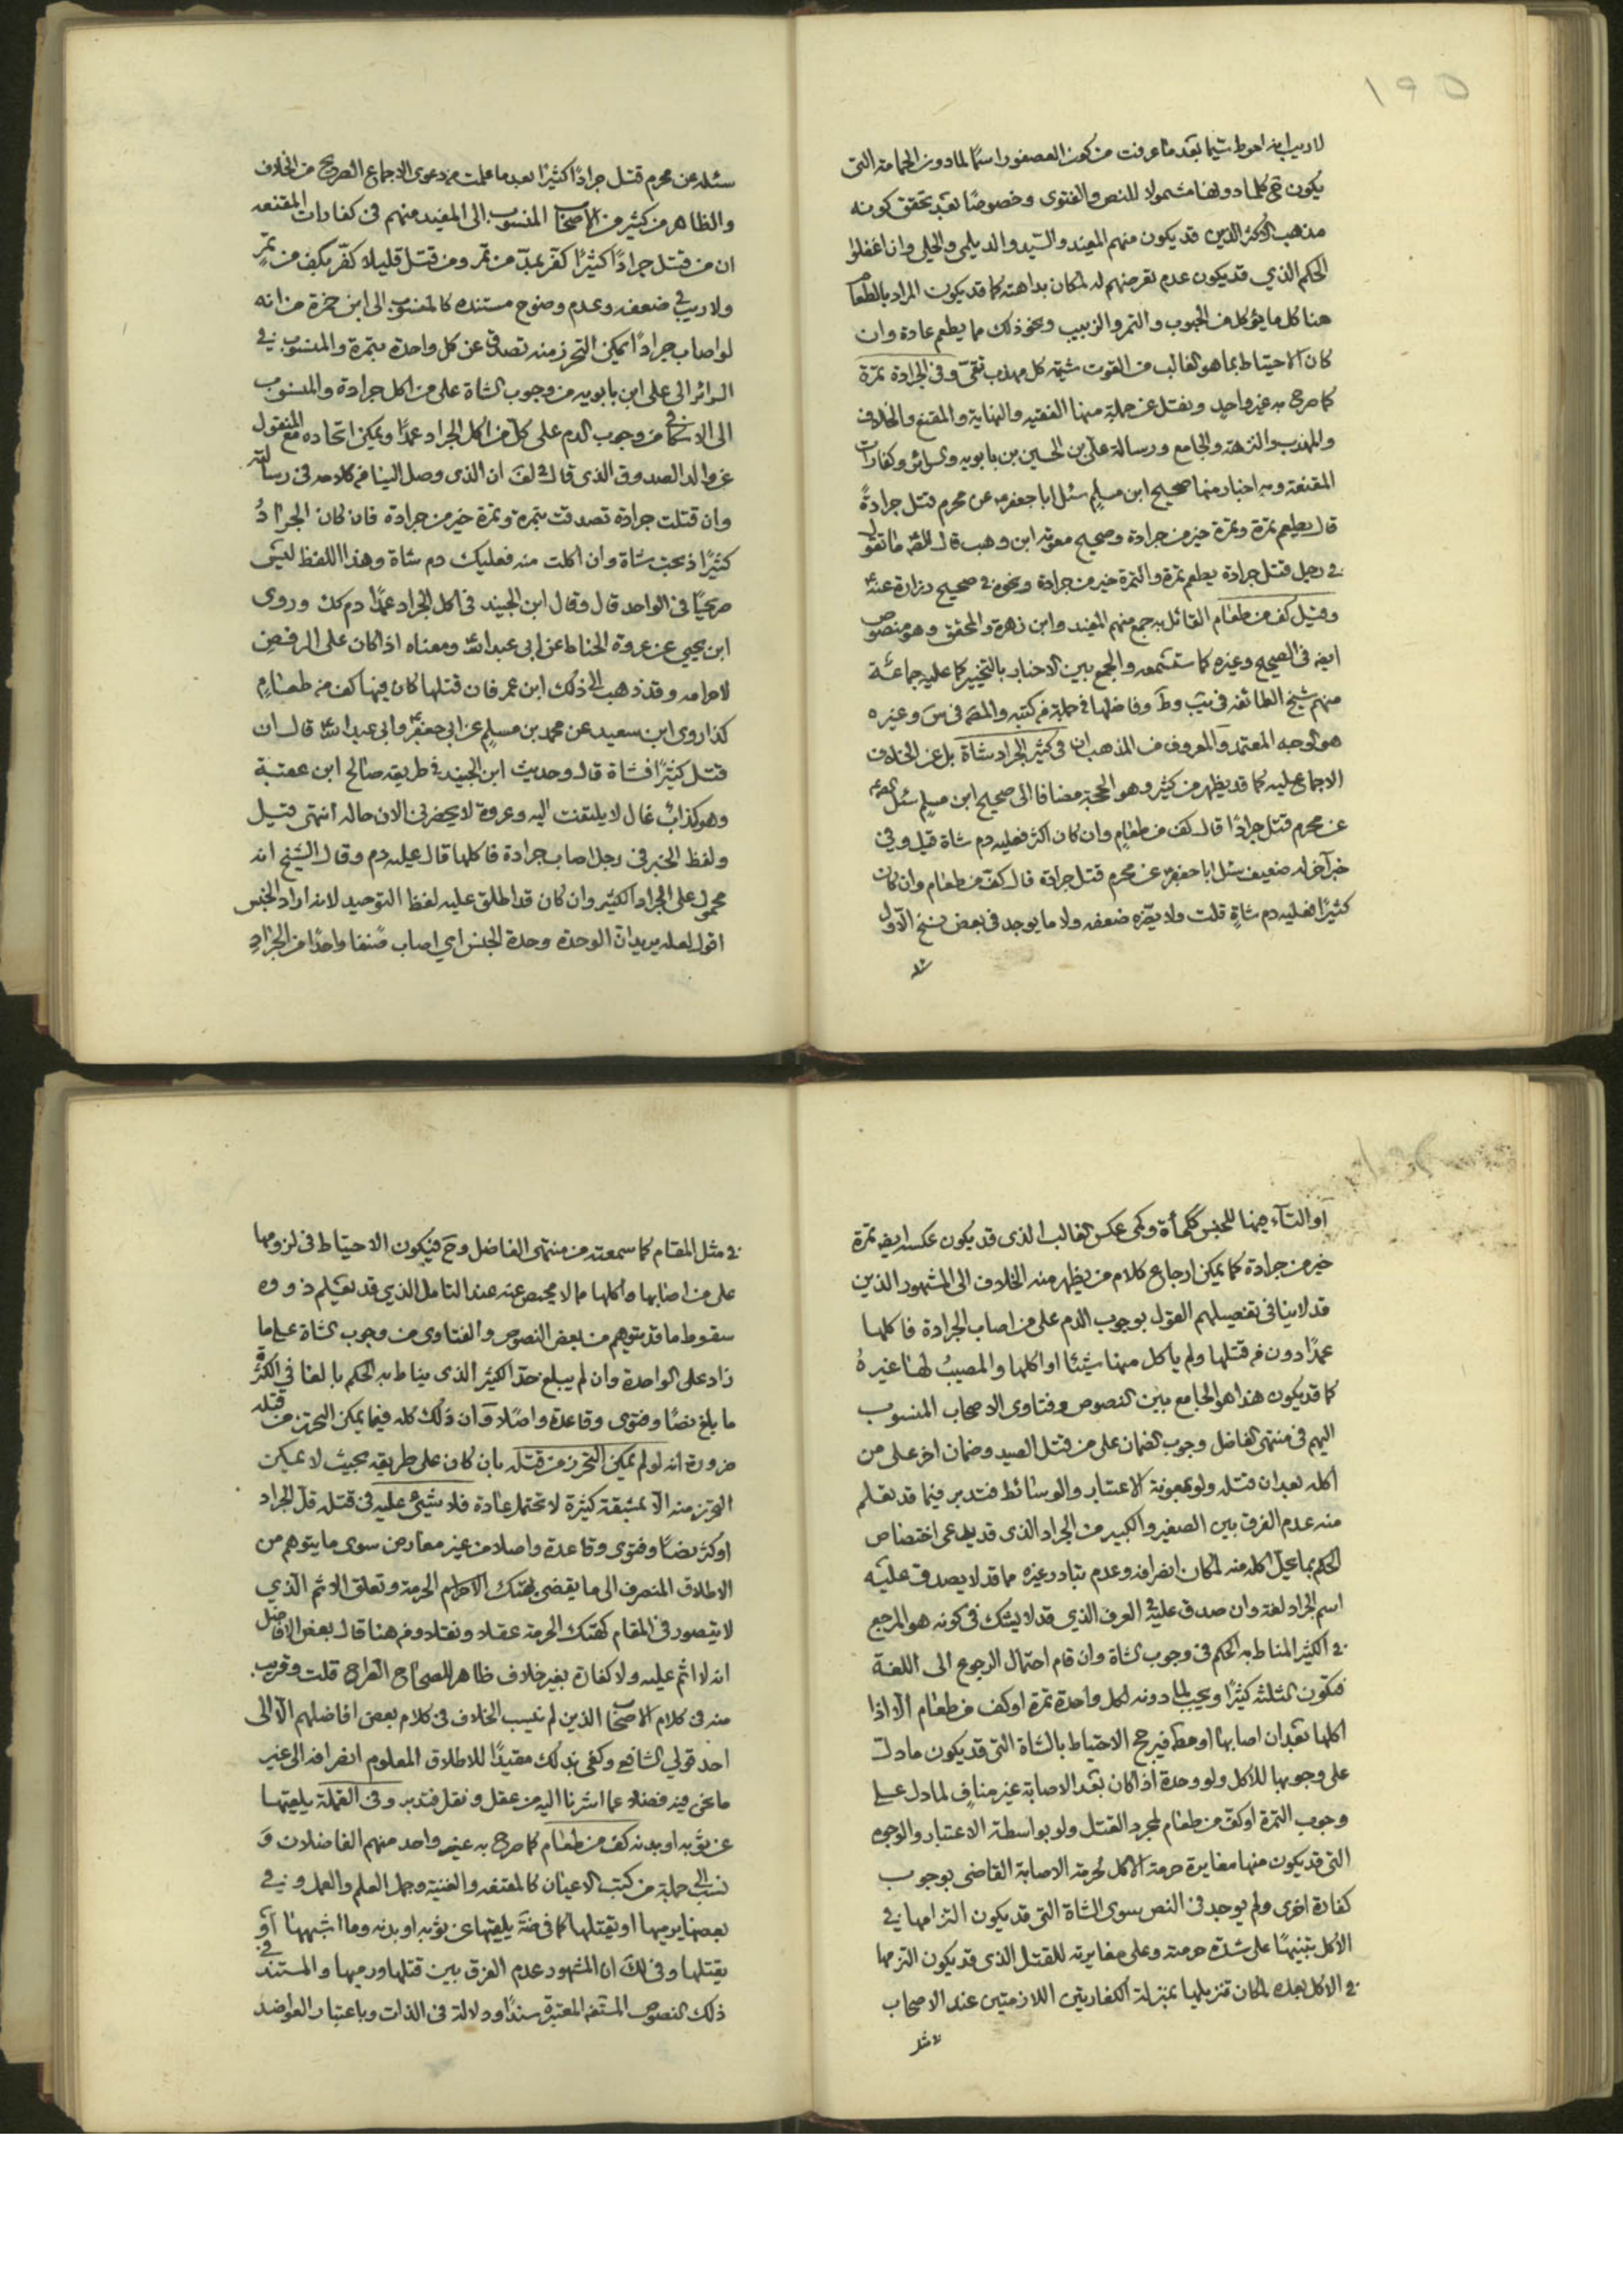 ١٩٥
لا ريب انه احوط سيما بعد ما عرفت من كون العصفور اسمًا لما دون الحمامة التى
يكون هى كلما دونها مشمولا للنص والفتوى وخصوصًا بعد تحقق كونه
مذهب الاكثر الذين قد يكون منهم المفيد والسيد والديلمى والحلى وان اغفلوا
الحكم الذي قد يكون عدم تعرضهم له لمكان بداهته كما قد يكون المراد بالطعام
هنا كل ما يؤكل من الحبوب والتمر والزبيب ونحو ذلك مما يطعم عادة وان
كان الاحتياط بما هو الغالب من القوت شيمة كل مهذب تقى وفى الجرادة تمرة
كما صرح به غير واحد ونقل عن جملة منها الفقيه والنهاية والمقنع والخلاف
والمهذب والنزهة والجامع ورسالة على بن الحسين بن بابويه والسرائر وكفارات
المقنعة وبه اخبار منها صحيح ابن مسلم سئل ابا جعفر عن محرم قتل جرادةً
قال يطعم تمرة وتمرة خير من جرادة وصحيح معوية ابن وهب قال للصم ما تقول
فى رجل قتل جرادة يطعم تمرة والتمرة خير من جرادة ونحوه فى صحيح زرارة عنه
وقيل كف من طعام القائل به جمع منهم المفيد وابن زهرة والمحقق وهو منصوص
ايضه فى الصحيح وغيره كما ستسمعه والجمع بين الاخبار بالتخيير كما عليه جماعة
منهم شيخ الطائفه فى يب وط وفاضلها فى جملة من كتبه والمصم فى س وغيره
هو الوجه المعتمد والمعروف من المذهب ان فى كثير الجراد شاة بل عن الخلاف
الاجماع عليه كما قد يظهر من كثير وهو الحجة مضافا الى صحيح ابن مسلم سئل الصم
عن محرم قتل جرادًا قال كف من طعام وان كان اكثر فعليه دم شاة قيل وفي
خبر آخر له ضعيف سئل ابا جعفر عن محرم قتل جرادة قال كف من طعام وان كان
كثيرًا فعليه دم شاةٍ قلت ولا يضره ضعفه ولا ما يوجد فى بعض نسخ الاول
سئله
سئله عن محرم قتل جرادًا كثيرًا بعد ما علمت من دعوى الاجماع الصريح من الخلاف
والظاهر من كثير من الاصحاب المنسوب الى المفيد منهم فى كفارات المقنعه
ان من قتل جرادًا كثيرًا كفر بمد من تمر ومن قتل قليلا كفر بكف من تمرٍ
ولا ريب فى ضعفه وعدم وضوح مستنده كالمنسوب الى ابن حمزة من انه
لو اصاب جرادًا يمكن التحرز منه تصدق عن كل واحدة بتمرة والمنسوب فى
السرائر الى على ابن بابويه من وجوب الشاة على من اكل جرادة والمنسوب
الى الاسكافى من وجوب الدم على كل من اكل الجراد عمدًا ويمكن اتحاده مع المنقول
عن والد الصدوق الذى قال فى لف ان الذى وصل الينا من كلامه فى رسالته
وان قتلت جرادة تصدقت بتمرة وتمرة خير من جرادة فان كان الجرادُ
كثيرًا ذبحت شاة وان اكلت منه فعليك دم شاة وهذا اللفظ ليس
صريحًا فى الواحد قال وقال ابن الجنيد فى اكل الجراد عمدًا دم كك وروى
ابن يحيى عن عروة الحناط عن ابى عبد الله ومعناه اذا كان على الرفض
لاحرامه وقد ذهب الى ذلك ابن عمر فان قتلها كان فيها كف من طعام
كذا روى ابن سعيد عن محمد بن مسلم عن ابى جعفر وابى عبد الله قال ان
قتل كثيرًا فشاة قال وحديث ابن الجنيد فى طريقه صالح ابن عقبة
وهو كذاب غال لا يلتفت اليه وعروة لا يحضرنى الان حاله انتهى قيل
ولفظ الخبر فى رجل اصاب جرادة فاكلها قال عليه دم وقال الشيخ انه
محمول على الجراد الكثير وان كان قد اطلق عليه لفظ التوحيد لانه اراد الجنس
اقول لعله يريد ان الوحدة وحدة الجنس اي اصاب صنفا واحدًا من الجرادِ
او التاء هيهنا للجنس ككمأة وكمى عكس الغالب الذى قد يكون عكسه ايضه تمرة
خير من جرادة كما يمكن ارجاع كلام من يظهر منه الخلاف الى المشهور الذين
قد لا ينافى تفصيلهم القول بوجوب الدم على من اصاب الجرادة فاكلها
عمدًا دون من قتلها ولم يأكل منها شيئا او اكلها والمصيب لها غيرهُ
كما قد يكون هذا هو الجامع بين النصوص وفتاوى الاصحاب المنسوب
اليهم فى منتهى الفاضل وجوب الضمان على من قتل الصيد وضمان اخر على من
اكله بعد ان قتله ولو بمعونة الاعتبار والوسائط فتدبر فيما قد يعلم
منه عدم الفرق بين الصغير والكبير من الجراد الذى قد يدعى اختصاص
الحكم بما يحل اكله منه لمكان انصرافه وعدم تبادر غيره مما قد لا يصدق عليه
اسم الجراد لغة وان صدق عليه فى العرف الذي قد لا يشك فى كونه هو المرجع
فى الكثير المناط به الحكم فى وجوب الشاة وان قام احتمال الرجوع الى اللغة
فتكون الثلثه كثيرًا ويجب لما دونه لكل واحدة تمرة او كف من طعام الا اذا
اكلها بعد ان اصابها او مط فيرجح الاحتياط بالشاة التى قد يكون ما دل
على وجوبها للاكل ولو وحدة اذا كان بعد الاصابة غير منافٍ لما دل على
وجوب التمرة او كف من طعام لمجرد القتل ولو بواسطة الاعتبار والوجوه
التى قد يكون منها مغايرة حرمة الاكل لحرمة الاصابة القاضى بوجوب
كفارة اخرى ولم يوجد فى النص سوى الشاة التى قد يكون التزامها فى
الاكل تنبيهًا على شدة حرمته وعلى مغايرته للقتل الذى قد يكون التزمها
فى الاكل بعده لمكان تنزيلها بمنزلة الكفارتين اللازمتين عند الاصحاب
فى مثل
فى مثل المقام كما سمعته من منتهى الفاضل وح فيكون الاحتياط فى لزومها
على من اصابها واكلها مما لا محيص عنه عند التامل الذي قد يعلم ذووه
سقوط ما قد يتوهم من بعض النصوص والفتاوى من وجوب الشاة على ما
زاد على الواحدة وان لم يبلغ حد الكثير الذى يناط به الحكم بالغا فى الكثرة
ما بلغ نصًا وفتوى وقاعدة واصلا وان ذلك كله فيما يمكن التحرز من قتله
ضرورة انه لو لم يمكن التحرز من قتله بان كان على طريقه بحيث لا يمكن
التحرز منه الا بمشقة كثيرة لا تحتمل عادة فلا شيئ عليه فى قتله قل الجراد
او كثر نصًا وفتوى وقاعدة واصلا من غير معارض سوى ما يتوهم من
الاطلاق المنصرف الى ما يقضى بهتك الاحرام الحرمة وتعلق الاثم الذي
لا يتصور فى المقام كهتك الحرمة عقلا ونقلا ومن هنا قال بعض الافاضل
انه لا اثم عليه ولا كفارة بغير خلاف ظاهر للصحاح الصراح قلت وقريب
منه فى كلام الاصحاب الذين لم ينسب الخلاف فى كلام بعض افاضلهم الا الى
احد قولي الشافعى وكفى بذلك مقيدًا للاطلاق المعلوم انصرافه الى غير
ما نحن فيه فضلا عما اشرنا اليه من عقل ونقل فتدبر وفى القملة يلقيها
عن ثوبه او بدنه كف من طعام كما صرح به غير واحد منهم الفاضلان و
نسب الى جملة من كتب الاعيان كالمقنعه والغنية وجمل العلم والعمل و فى
بعضها يرميها او يقتلها كما فى ضة يلقيها عن ثوبه او بدنه وما اشبههنا او
يقتلها وفى لك ان المشهور عدم الفرق بين قتلها ورميها والمستند فى
ذلك النصوص المستفيضة المعتبرة سندًا ودلالة فى الذات وباعتبار العواضد